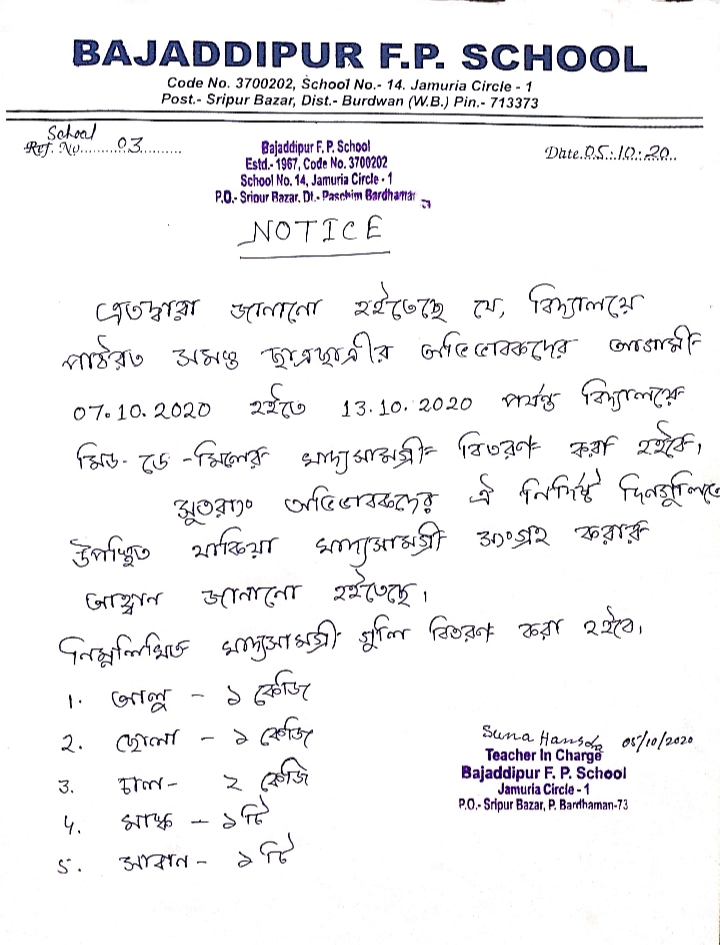 BAJADDIPUR F.P. SCHOOL
Code No. 3700202, School No.- 14. Jamuria Circle - 1
Post.- Sripur Bazar, Dist.- Burdwan (W.B.) Pin.- 713373
School
Ref. No..........03..........
Date.05.:.10.:.20..
Bajaddipur F. P. School
Estd.- 1967, Code No. 3700202
School No. 14, Jamuria Circle - 1
P.O.- Sripur Bazar. Dt.- Paschim Bardhaman
NOTICE
এতদ্বারা জানানো হইতেছে যে, বিদ্যালয়ে
পাঠরত সমস্ত ছাত্রছাত্রীর অভিভাবকদের আগামী
07.10.2020 হইতে 13.10.2020 পর্যন্ত বিদ্যালয়ে
মিড-ডে-মিলের খাদ্যসামগ্রী বিতরণ করা হইবে,
সুতরাং অভিভাবকদের ঐ নির্দিষ্ট দিনগুলিতে
উপস্থিত থাকিয়া খাদ্যসামগ্রী সংগ্রহ করার
আহ্বান জানানো হইতেছে।
নিম্নলিখিত খাদ্যসামগ্রী গুলি বিতরণ করা হইবে।
1. আলু - ১ কেজি
2. ছোলা - ১ কেজি
3. চাল - ২ কেজি
4. মাস্ক - ১টি
5. সাবান - ১টি
Suna Hansda 05/10/2020
Teacher In Charge
Bajaddipur F. P. School
Jamuria Circle - 1
P.O.- Sripur Bazar, P. Bardhaman-73